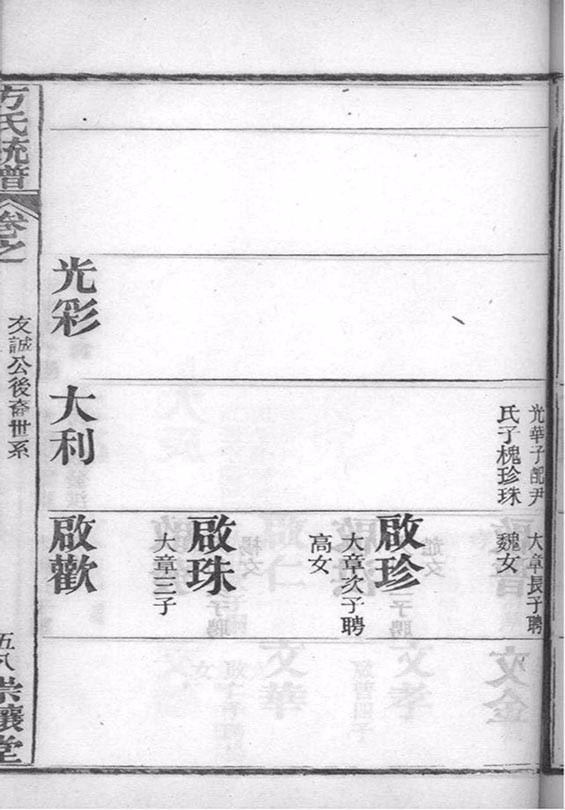 光華子配尹
氏子槐珍珠
大章長子聘
魏女
啟珍
大章次子聘
高女
啟珠
大章三子
光彩
大利
啟歡
方氏統譜
卷之
友誠公後裔世系
五八
崇讓堂